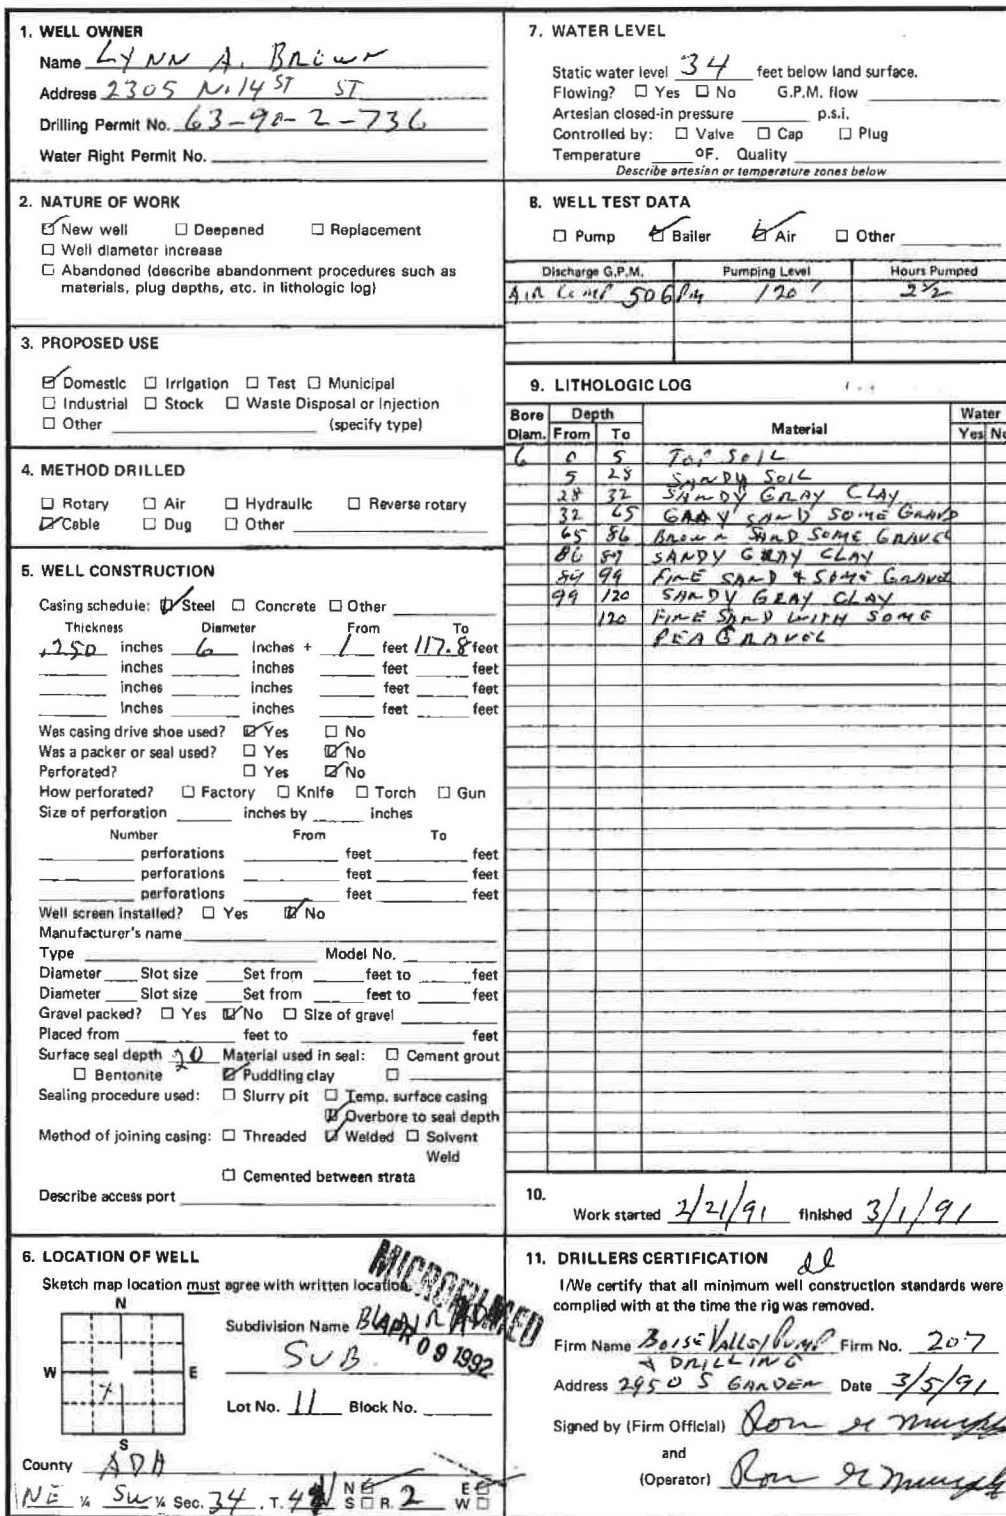 1. WELL OWNER
Name LYNN A. BROWN
Address 2305 N. 14 ST ST
Drilling Permit No. 63-90-2-736
Water Right Permit No.
2. NATURE OF WORK
New well Deepened Replacement
Well diameter increase
Abandoned (describe abandonment procedures such as
materials, plug depths, etc. in lithologic log)
3. PROPOSED USE
Domestic Irrigation Test Municipal
Industrial Stock Waste Disposal or Injection
Other (specify type)
4. METHOD DRILLED
Rotary Air Hydraulic Reverse rotary
Cable Dug Other
5. WELL CONSTRUCTION
Casing schedule: Steel Concrete Other
Thickness Diameter From To
.250 inches 6 inches + 1 feet 117.8 feet
inches inches feet feet
inches inches feet feet
inches inches feet feet
Was casing drive shoe used? Yes No
Was a packer or seal used? Yes No
Perforated? Yes No
How perforated? Factory Knife Torch Gun
Size of perforation inches by inches
Number From To
perforations feet feet
perforations feet feet
perforations feet feet
Well screen installed? Yes No
Manufacturer's name
Type Model No.
Diameter Slot size Set from feet to feet
Diameter Slot size Set from feet to feet
Gravel packed? Yes No Size of gravel
Placed from feet to feet
Surface seal depth 20 Material used in seal: Cement grout
Bentonite Puddling clay
Sealing procedure used: Slurry pit Temp. surface casing
Overbore to seal depth
Method of joining casing: Threaded Welded Solvent
Weld
Cemented between strata
Describe access port
6. LOCATION OF WELL
Sketch map location must agree with written location.
MICROFILMED
APR 09 1992
N
W E
S
Subdivision Name BLAIR
SUB
Lot No. 11 Block No.
County ADA
NE ¼ SW ¼ Sec. 34, T. 4 N S R. 2 E W
7. WATER LEVEL
Static water level 34 feet below land surface.
Flowing? Yes No G.P.M. flow
Artesian closed-in pressure p.s.i.
Controlled by: Valve Cap Plug
Temperature °F. Quality
Describe artesian or temperature zones below
8. WELL TEST DATA
Pump Bailer Air Other
Discharge G.P.M. Pumping Level Hours Pumped
AIR COMP 50 GPM 120' 2 1/2
9. LITHOLOGIC LOG
Bore Diam. Depth From To Material Water Yes No
6 0 5 TOP SOIL
5 28 SANDY SOIL
28 32 SANDY GRAY CLAY
32 65 GRAY SAND SOME GRAVEL
65 86 BROWN SAND SOME GRAVEL
86 89 SANDY GRAY CLAY
89 99 FINE SAND & SOME GRAVEL
99 120 SANDY GRAY CLAY
120 FINE SAND WITH SOME
PEA GRAVEL
10.
Work started 2/21/91 finished 3/1/91
11. DRILLERS CERTIFICATION
I/We certify that all minimum well construction standards were
complied with at the time the rig was removed.
Firm Name BOISE VALLEY PUMP Firm No. 207
& DRILLING
Address 2950 S GARDEN Date 3/5/91
Signed by (Firm Official) Ron
and
(Operator) Ron